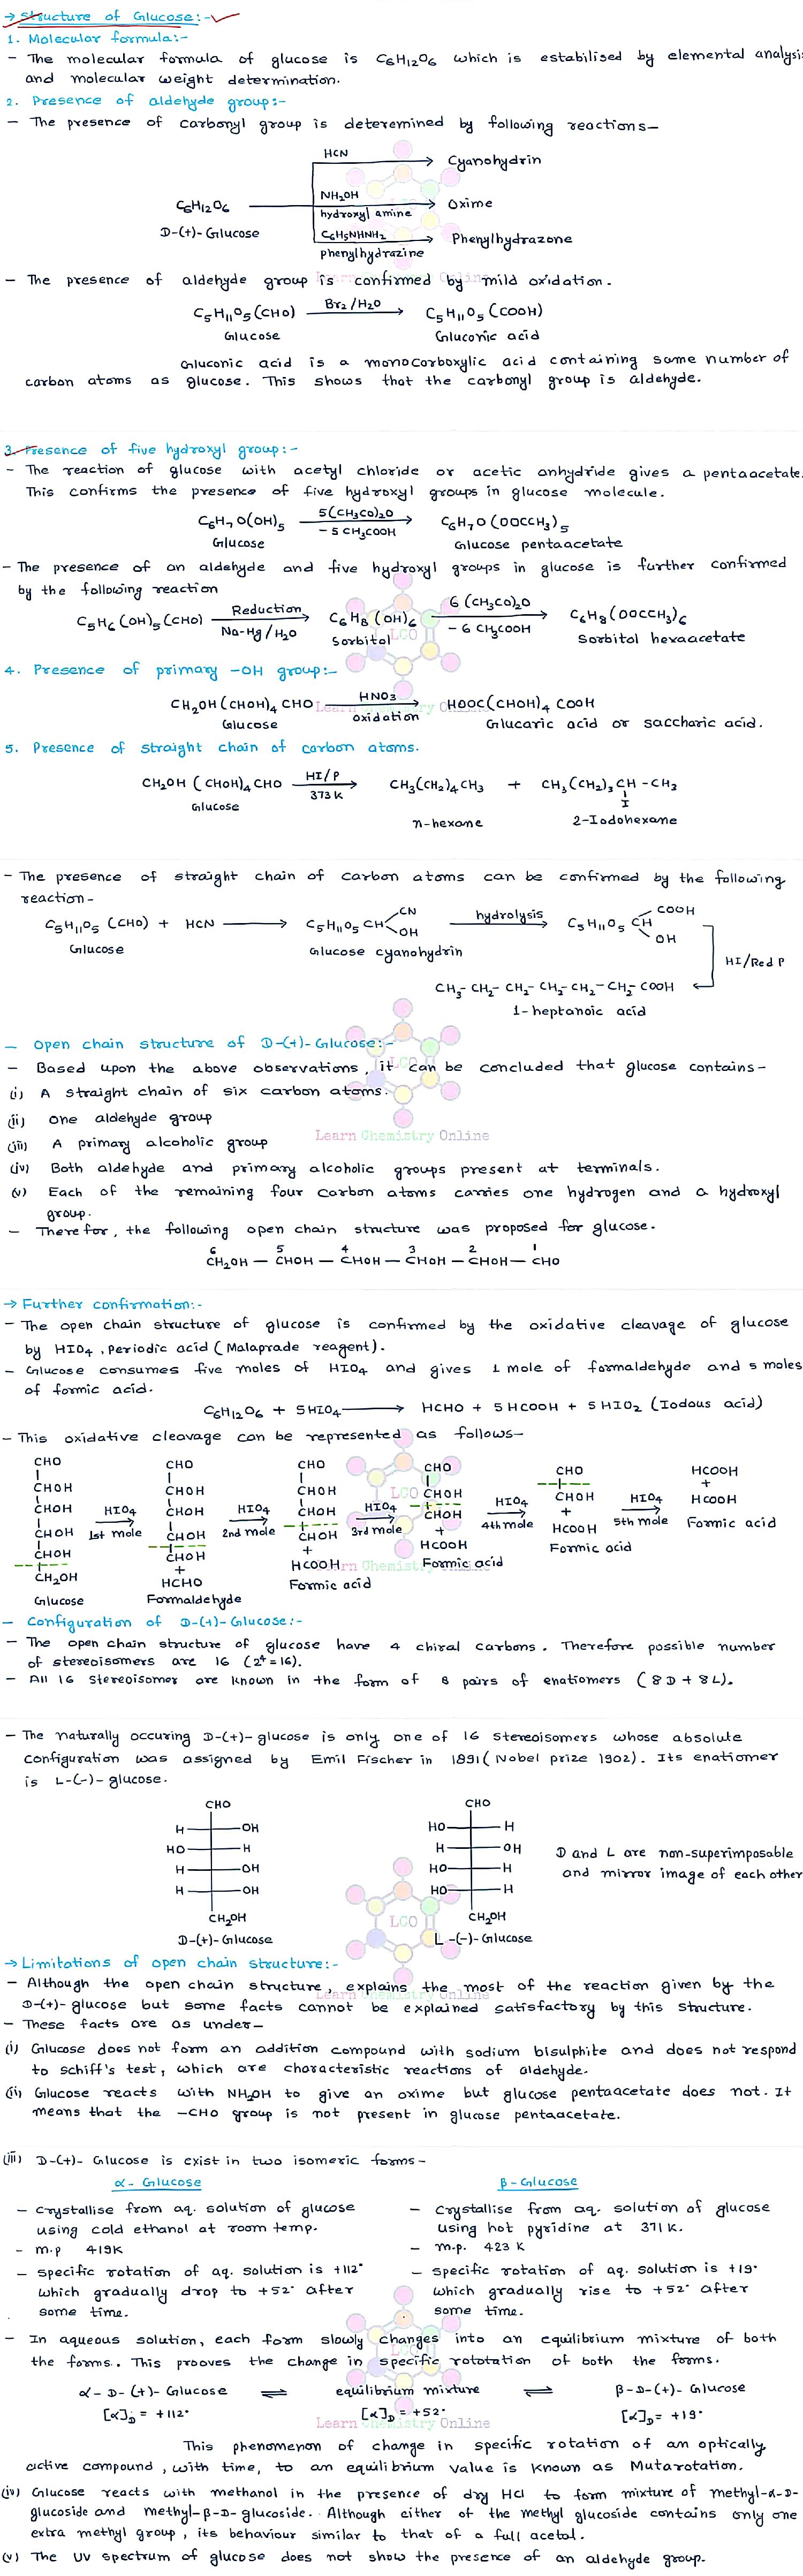 → Structure of Glucose:-
1. Molecular formula:-
- The molecular formula of glucose is C6H12O6 which is estabilised by elemental analysis
and molecular weight determination.
2. Presence of aldehyde group:-
- The presence of carbonyl group is deteremined by following reactions—
HCN
Cyanohydrin
C6H12O6
NH2OH
Oxime
hydroxyl amine
D-(+)-Glucose
C6H5NHNH2
Phenylhydrazone
phenylhydrazine
Learn Chemistry Online
- The presence of aldehyde group is confirmed by mild oxidation.
C5H11O5(CHO) Br2/H2O → C5H11O5(COOH)
Glucose Gluconic acid
Gluconic acid is a monocarboxylic acid containing same number of
carbon atoms as glucose. This shows that the carbonyl group is aldehyde.
3. Presence of five hydroxyl group:-
- The reaction of glucose with acetyl chloride or acetic anhydride gives a pentaacetate.
This confirms the presence of five hydroxyl groups in glucose molecule.
C6H7O(OH)5 5(CH3CO)2O → C6H7O(OOCCH3)5
-5CH3COOH
Glucose Glucose pentaacetate
- The presence of an aldehyde and five hydroxyl groups in glucose is further confirmed
by the following reaction
C5H6(OH)5(CHO) Reduction → C6H8(OH)6 6(CH3CO)2O → C6H8(OOCCH3)6
Na-Hg/H2O Sorbitol -6CH3COOH Sorbitol hexaacetate
LCO
4. Presence of primary -OH group:-
CH2OH(CHOH)4CHO HNO3 → HOOC(CHOH)4COOH
Learn Chemistry Online
Glucose oxidation Glucaric acid or saccharic acid.
5. Presence of straight chain of carbon atoms.
CH2OH(CHOH)4CHO HI/P → CH3(CH2)4CH3 + CH3(CH2)3CH-CH3
373K I
Glucose
n-hexane 2-Iodohexane
- The presence of straight chain of carbon atoms can be confirmed by the following
reaction-
C5H11O5(CHO) + HCN → C5H11O5CH CN OH hydrolysis → C5H11O5CH COOH OH
Glucose Glucose cyanohydrin
HI/Red P
CH3-CH2-CH2-CH2-CH2-CH2-COOH
1-heptanoic acid
- Open chain structure of D-(+)-Glucose:-
- Based upon the above observations, it can be concluded that glucose contains-
LCO
(i) A straight chain of six carbon atoms.
(ii) One aldehyde group
(iii) A primary alcoholic group
Learn Chemistry Online
(iv) Both aldehyde and primary alcoholic groups present at terminals.
(v) Each of the remaining four carbon atoms carries one hydrogen and a hydroxyl
group.
- Therefor, the following open chain structure was proposed for glucose.
6 5 4 3 2 1
CH2OH — CHOH — CHOH — CHOH — CHOH — CHO
→ Further confirmation:-
- The open chain structure of glucose is confirmed by the oxidative cleavage of glucose
by HIO4, periodic acid (Malaprade reagent).
- Glucose consumes five moles of HIO4 and gives 1 mole of formaldehyde and 5 moles
of formic acid.
C6H12O6 + 5HIO4 → HCHO + 5HCOOH + 5HIO2 (Iodous acid)
- This oxidative cleavage can be represented as follows-
CHO CHO CHO CHO CHO HCOOH
CHOH CHOH CHOH LCO CHOH CHOH +
CHOH HIO4 CHOH HIO4 CHOH HIO4 CHOH HIO4 + HIO4 HCOOH
CHOH 1st mole CHOH 2nd mole CHOH 3rd mole + 4th mole HCOOH 5th mole Formic acid
CHOH CHOH + HCOOH Formic acid
CH2OH + HCOOH Formic acid
Learn Chemistry Online
HCHO Formic acid
Glucose Formaldehyde
- Configuration of D-(+)-Glucose:-
- The open chain structure of glucose have 4 chiral carbons. Therefore possible number
of stereoisomers are 16 (2⁴=16).
- All 16 stereoisomer are known in the form of 8 pairs of enatiomers (8D+8L).
- The naturally occuring D-(+)-glucose is only one of 16 stereoisomers whose absolute
configuration was assigned by Emil Fischer in 1891 (Nobel prize 1902). Its enatiomer
is L-(-)-glucose.
CHO CHO
H OH HO H
HO H H OH
H OH HO H
H OH HO H
CH2OH CH2OH
D and L are non-superimposable
and mirror image of each other
LCO
D-(+)-Glucose L-(-)-Glucose
→ Limitations of open chain structure:-
- Although the open chain structure, explains the most of the reaction given by the
D-(+)-glucose but some facts cannot be explained satisfactory by this structure.
Learn Chemistry Online
- These facts are as under—
(i) Glucose does not form an addition compound with sodium bisulphite and does not respond
to schiff's test, which are characteristic reactions of aldehyde.
(ii) Glucose reacts with NH2OH to give an oxime but glucose pentaacetate does not. It
means that the -CHO group is not present in glucose pentaacetate.
(iii) D-(+)-Glucose is exist in two isomeric forms-
α-Glucose β-Glucose
- Crystallise from aq. solution of glucose - Crystallise from aq. solution of glucose
using cold ethanol at room temp. using hot pyridine at 371K.
- m.p 419K - m.p. 423 K
- specific rotation of aq. solution is +112° - specific rotation of aq. solution is +19°
which gradually drop to +52° after which gradually rise to +52° after
some time. some time.
- In aqueous solution, each form slowly changes into an equilibrium mixture of both
the forms. This prooves the change in specific rototation of both the forms.
α-D-(+)-Glucose ⇌ equilibrium mixture ⇌ β-D-(+)-Glucose
[α]D = +112° [α]D = +52° [α]D = +19°
Learn Chemistry Online
This phenomenon of change in specific rotation of an optically
active compound, with time, to an equilibrium value is known as Mutarotation.
(iv) Glucose reacts with methanol in the presence of dry HCl to form mixture of methyl-α-D-
glucoside and methyl-β-D-glucoside. Although either of the methyl glucoside contains only one
extra methyl group, its behaviour similar to that of a full acetal.
(v) The UV spectrum of glucose does not show the presence of an aldehyde group.